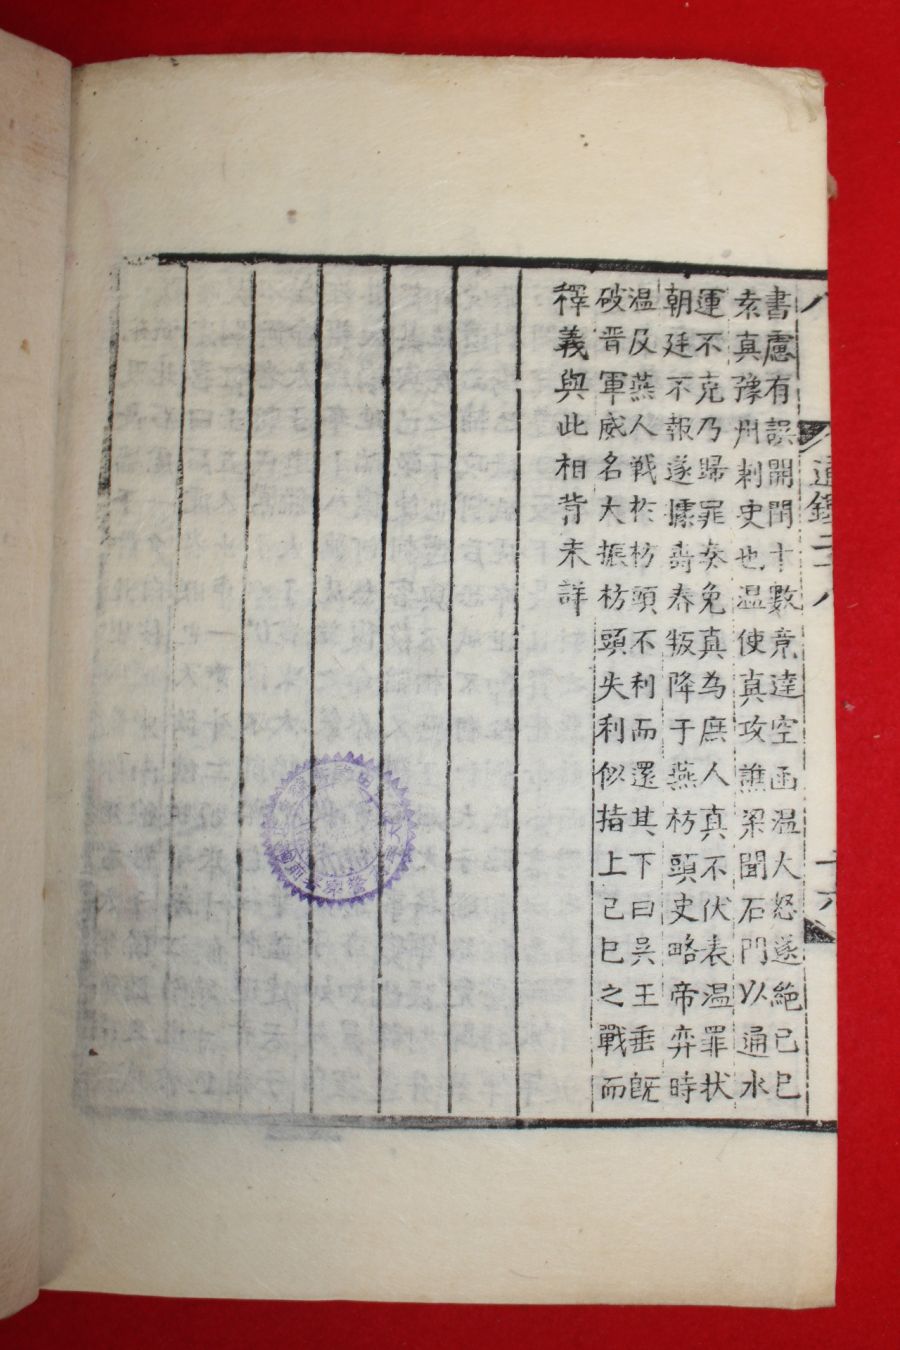 通鑑
書慮有誤開閉十數竟達空函温大怒遂絶己巳
素真豫州刺史也温使真攻譙梁聞石門以通水
運不克乃歸罪奏免真為庶人真不伏表温罪状
朝廷不報遂據壽春叛降于燕枋頭史略帝弈時
温及燕人戰於枋頭不利而還其下曰吳王垂既
破晋軍威名大振枋頭失利似指上己巳之戰而
釋義與此相背未詳